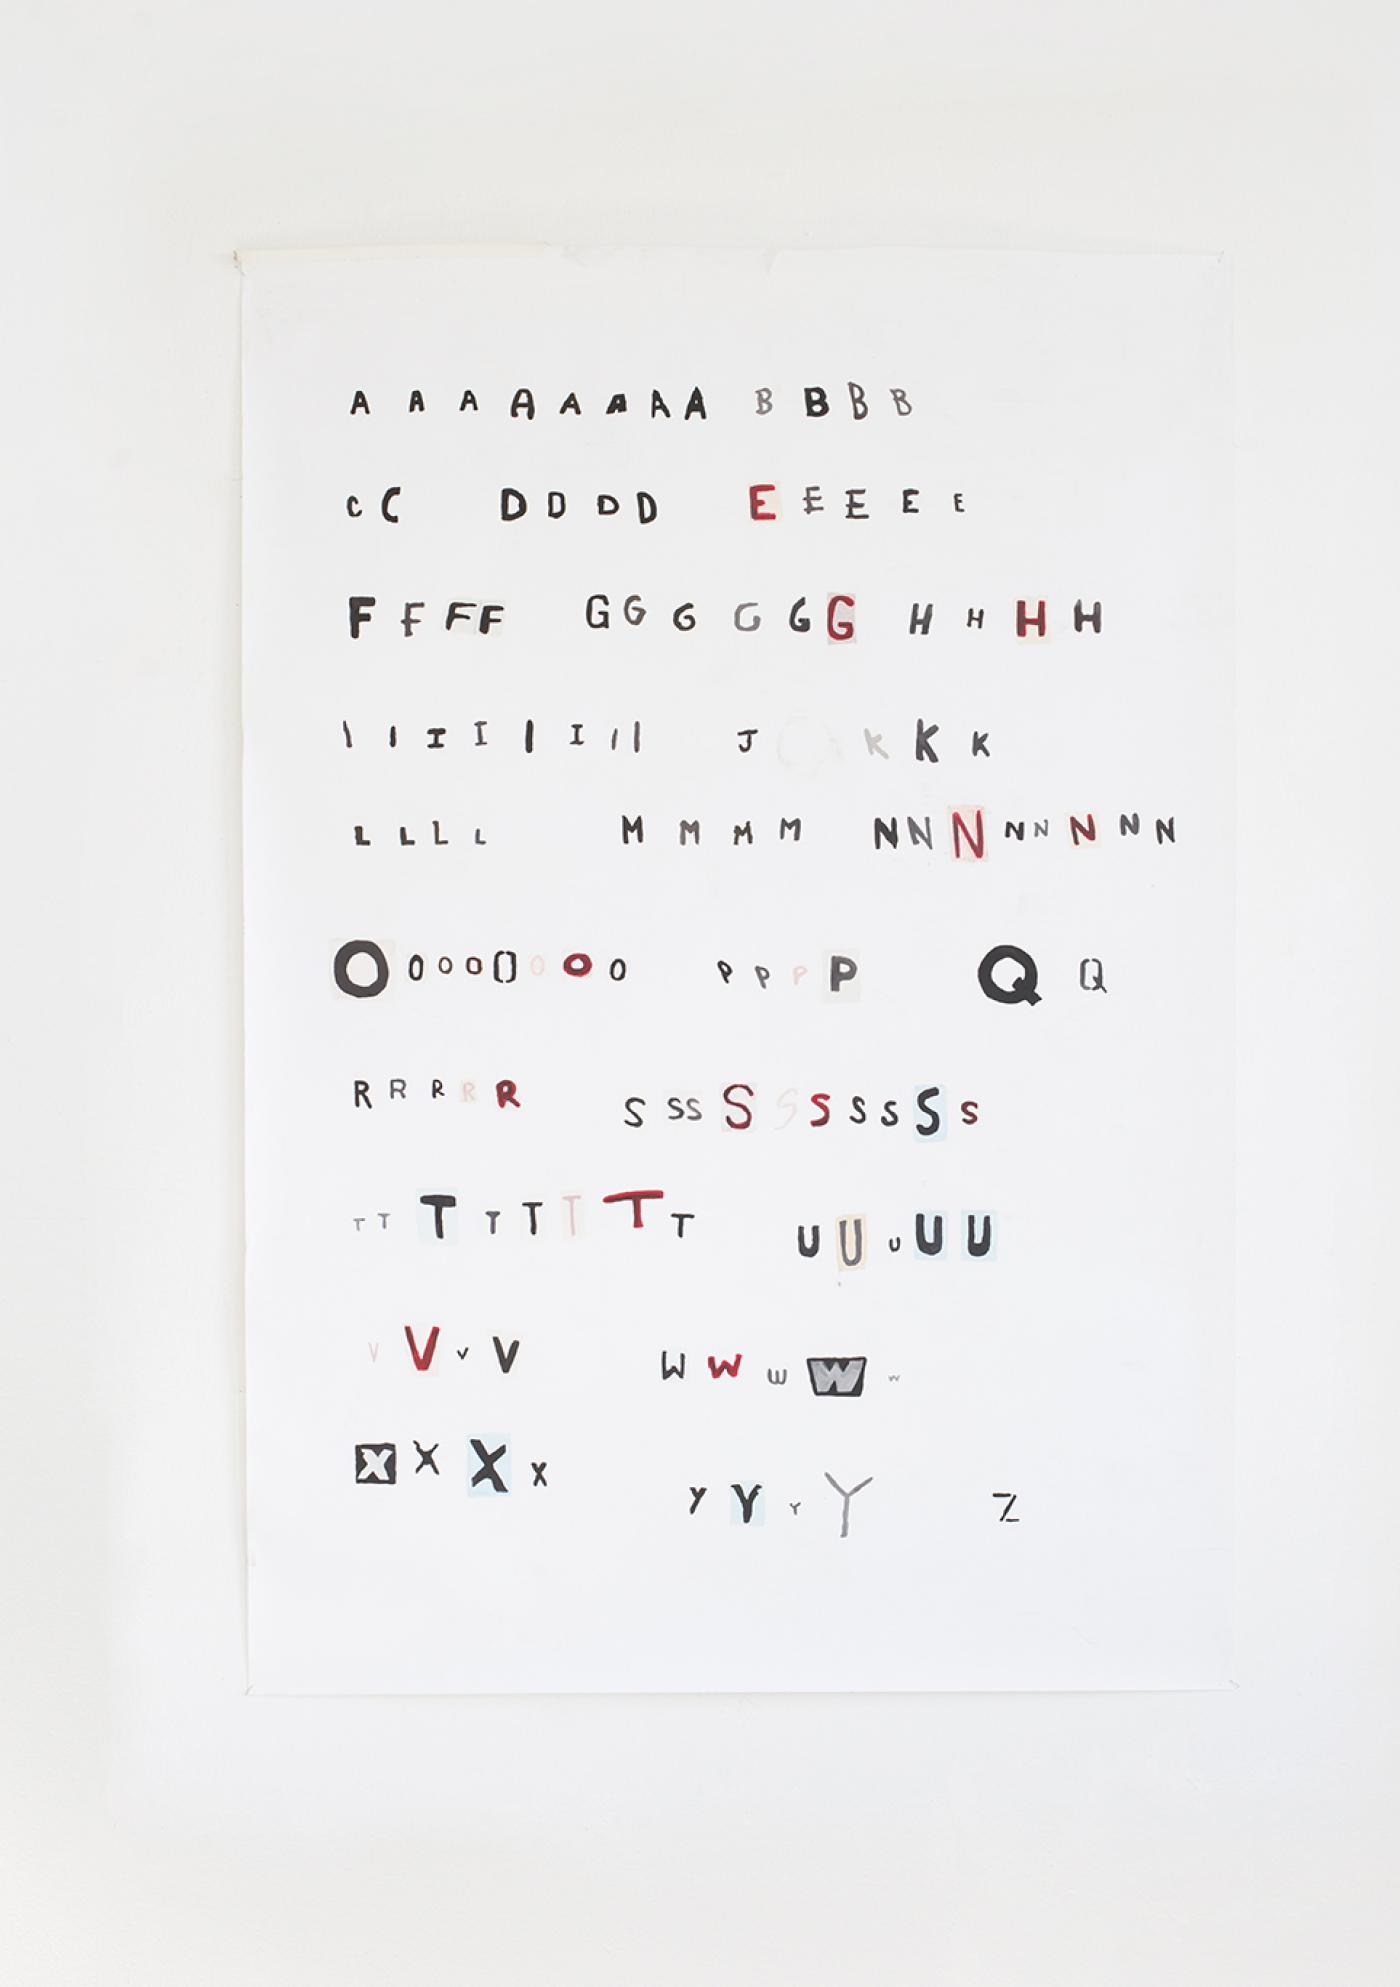 A A A A A A A A B B B B
C C D D D D E E E E E
F F F F G G G G G G H H H H
I I I I I I I I J K K K
L L L L M M M M N N N N N N N N
O O O O O O O O P P P P Q Q
R R R R R S S S S S S S S S S
T T T T T T T T U U U U U
V V V V W W W W W
X X X X Y Y Y Y Z